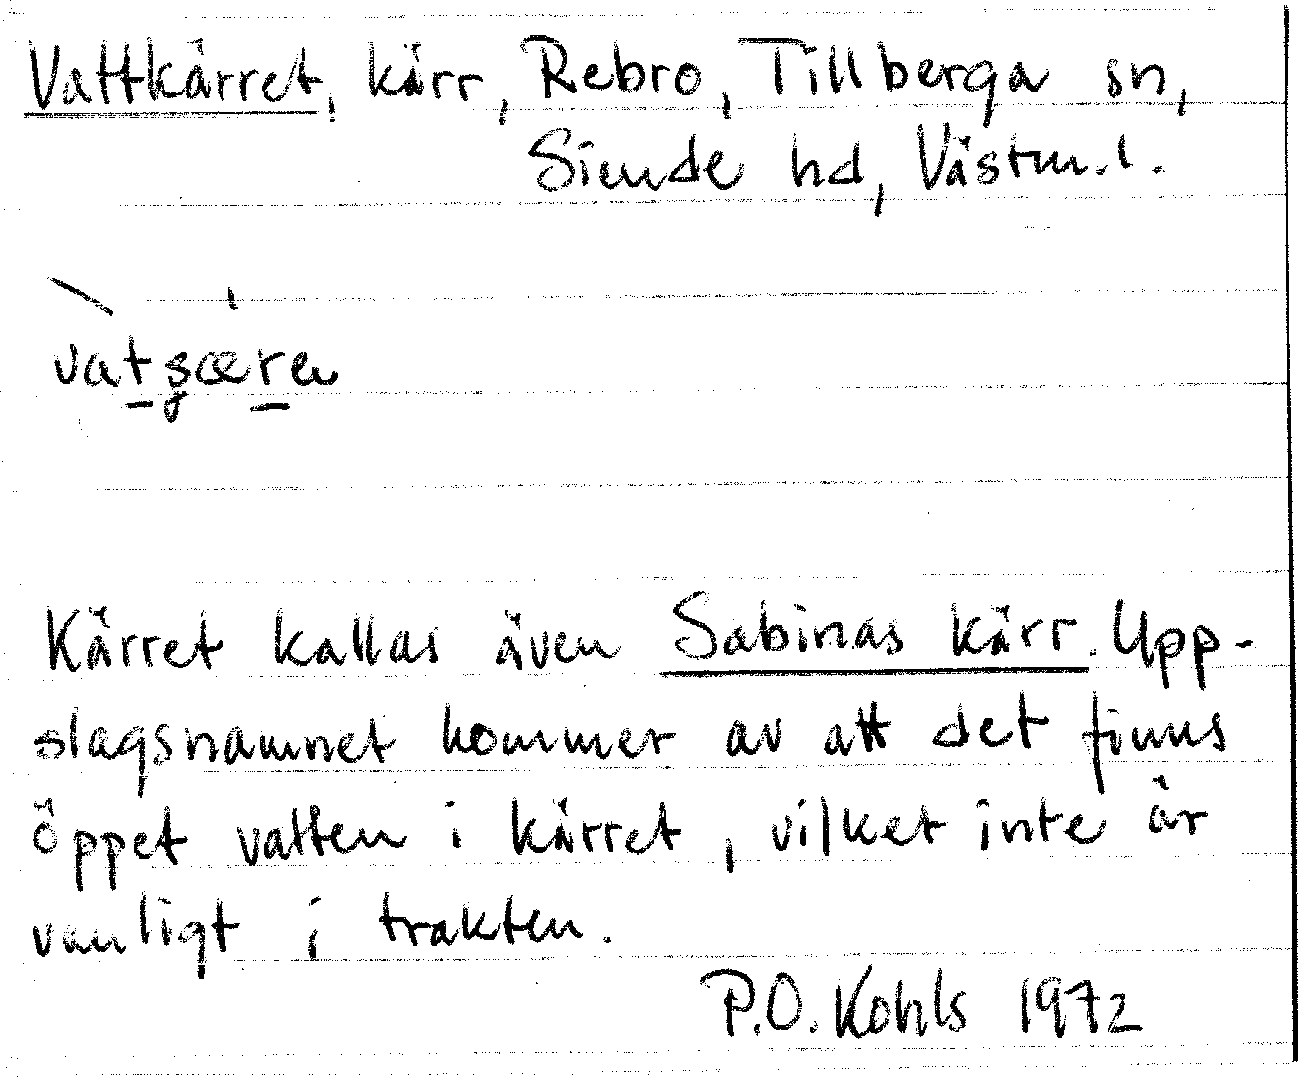 Vattkärret, kärr, Rebro, Tillberga sn,
Siende hd, Västm. l.
vatʂæren
Kärret kallas även Sabinas kärr. Upp-
slagsnamnet kommer av att det finns
öppet vatten i kärret, vilket inte är
vanligt i trakten.
P.O. Kohls 1972